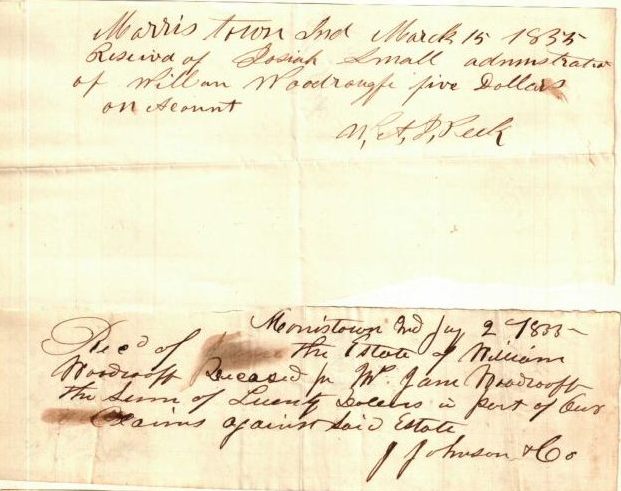 Morris town Ind March 15 1855
Reseivd of Josiah Small admnistrator
of Willan Woodrougfe five Dollars
on Acount
W, A, P, Peck
Morristown Ind Jay 2d 1855
Rec'd of the Estate of William
Woodrooff Deceased pr Mr. Jane Woodrooff
the Sum of Twenty Dollars in part of Our
Claims against Said Estate
J Johnson & Co